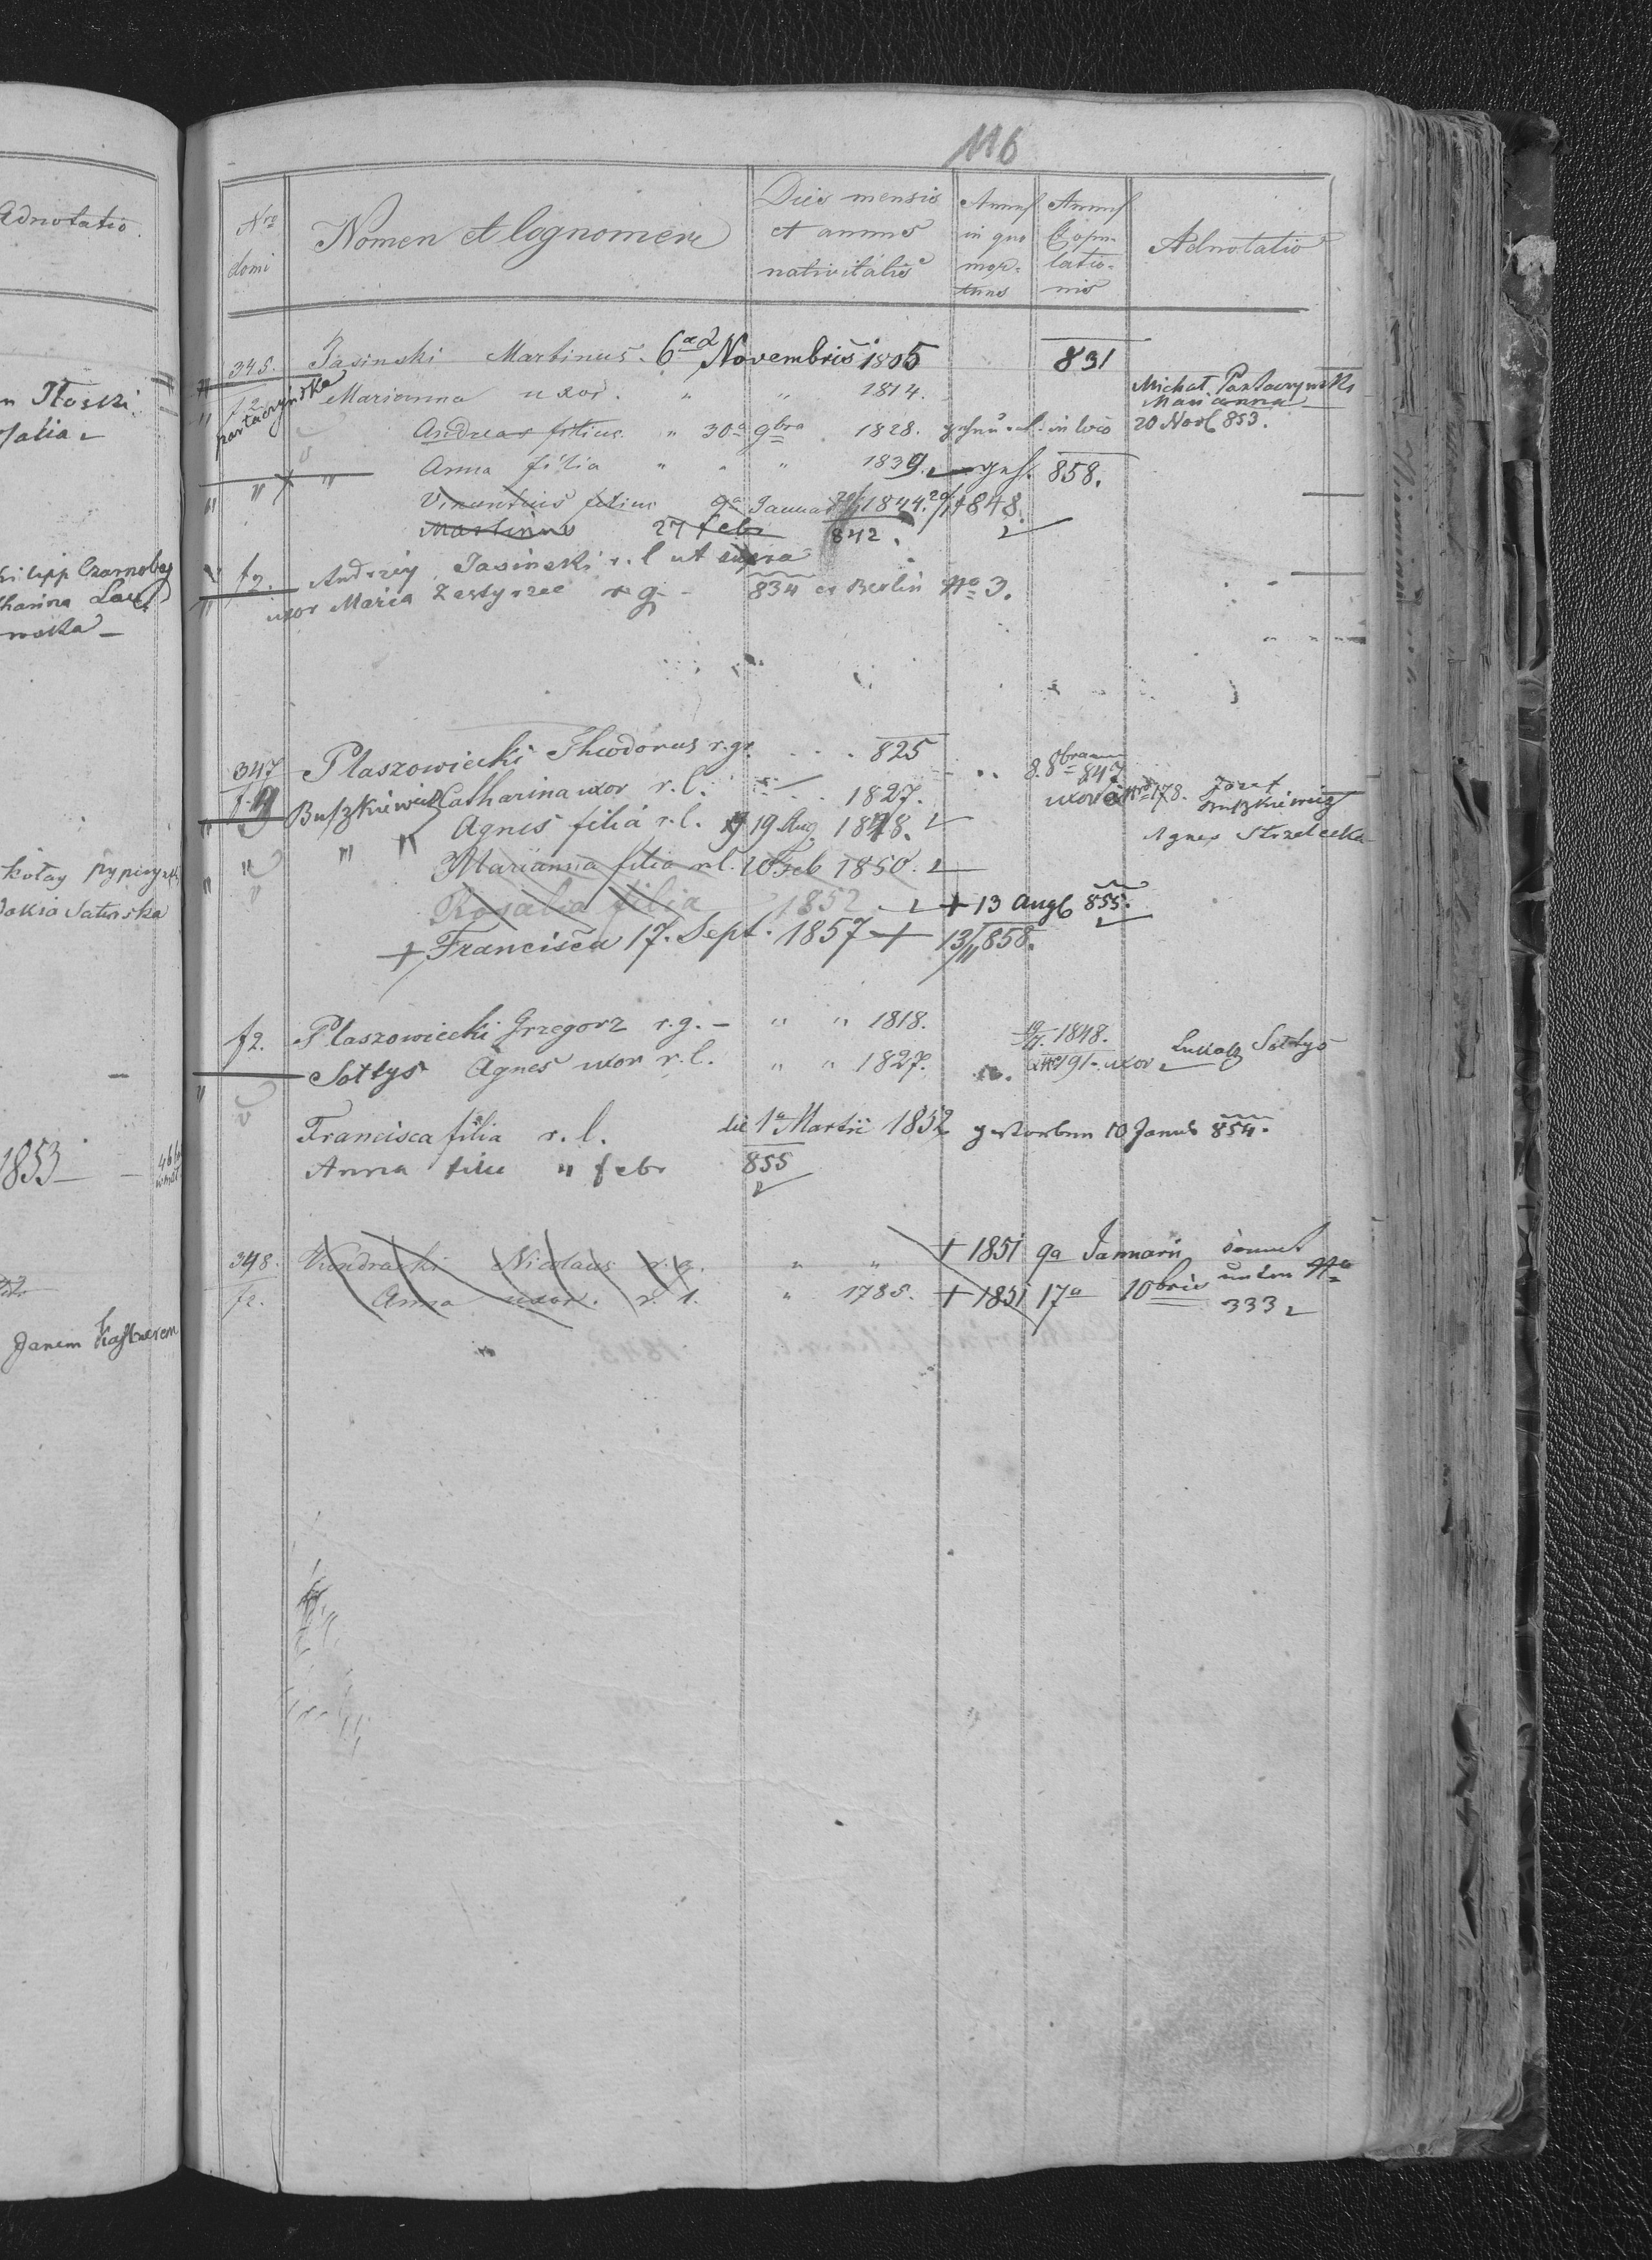 Adnotatio.
116
Nro domi
Nomen et Cognomen
Dies mensis et annus nativitatis
Annus in quo mortuus
Annus Copulationis
Adnotatio
345. Jasinski Martinus. 6ta Novembris 1805 831
f2. Partaczyńska Marianna uxor. " " 1814. Michał Partaczynski Marianna
Andreas filius. " 30a 9bra 1828. in loco 20 Novb 853.
" Anna filia " " " 1839. 858.
Vincentius filius 9a Januar 1844. 1848.
Martinus 27 febr 842.
f2. Andrzéy Jasinski r.l ut supra
uxor Maria Zestyrzec r g - 834 ex Berlin No 3.
347 Płaszowiecki Theodorus r.gr. . . . 825 8. 8bram 847
Buszkiewicz Catharina uxor r.l. 1827. uxor a Nro 178. Józef Buszkiewicz
" " Agnes filia r.l. 19 Aug 1848. Agnes Strzelecka
" Marianna filia r.l. 10 Feb 1850.
" Rosalia filia 1852 + 13 Augb 855.
+ Francisca 17. Sept. 1857 + 13/11 858.
f2. Płaszowiecki Grzegorz r.g. - " " 1818. 1848.
Sołtys Agnes uxor r.l. " " 1827. 191 - uxor Lukasz Sołtys
Francisca filia r.l. die 1a Martii 1852 gestorben 10 Janub 854.
Anna filia 4 febr 855
348. Nicolaus r.g. " " + 1851 9a Januarii
f2. Anna uxor. r. l. " 1785. + 1851 17a 10bris unten No 333
Iłoski
Filipp Czarnobey
wska
1853
Janem